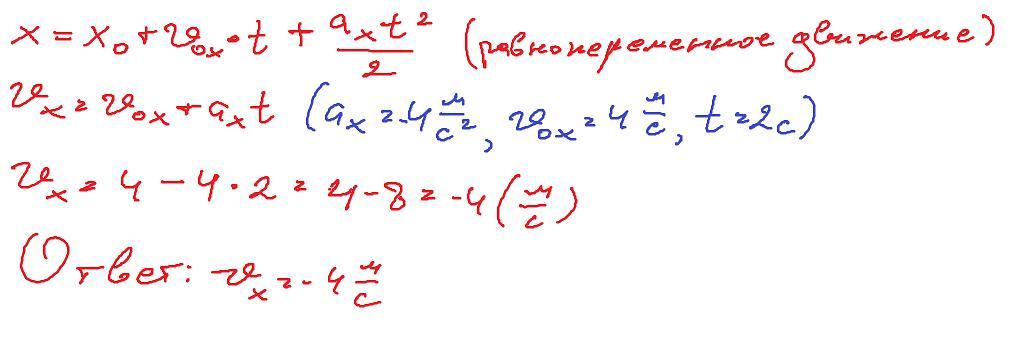 x = x₀ + v₀ₓ · t + aₓt²/2 (равнопеременное движение)
vₓ = v₀ₓ + aₓt (aₓ = -4 м/с², v₀ₓ = 4 м/с, t = 2с)
vₓ = 4 - 4 · 2 = 4 - 8 = -4 (м/с)
Ответ: vₓ = -4 м/с